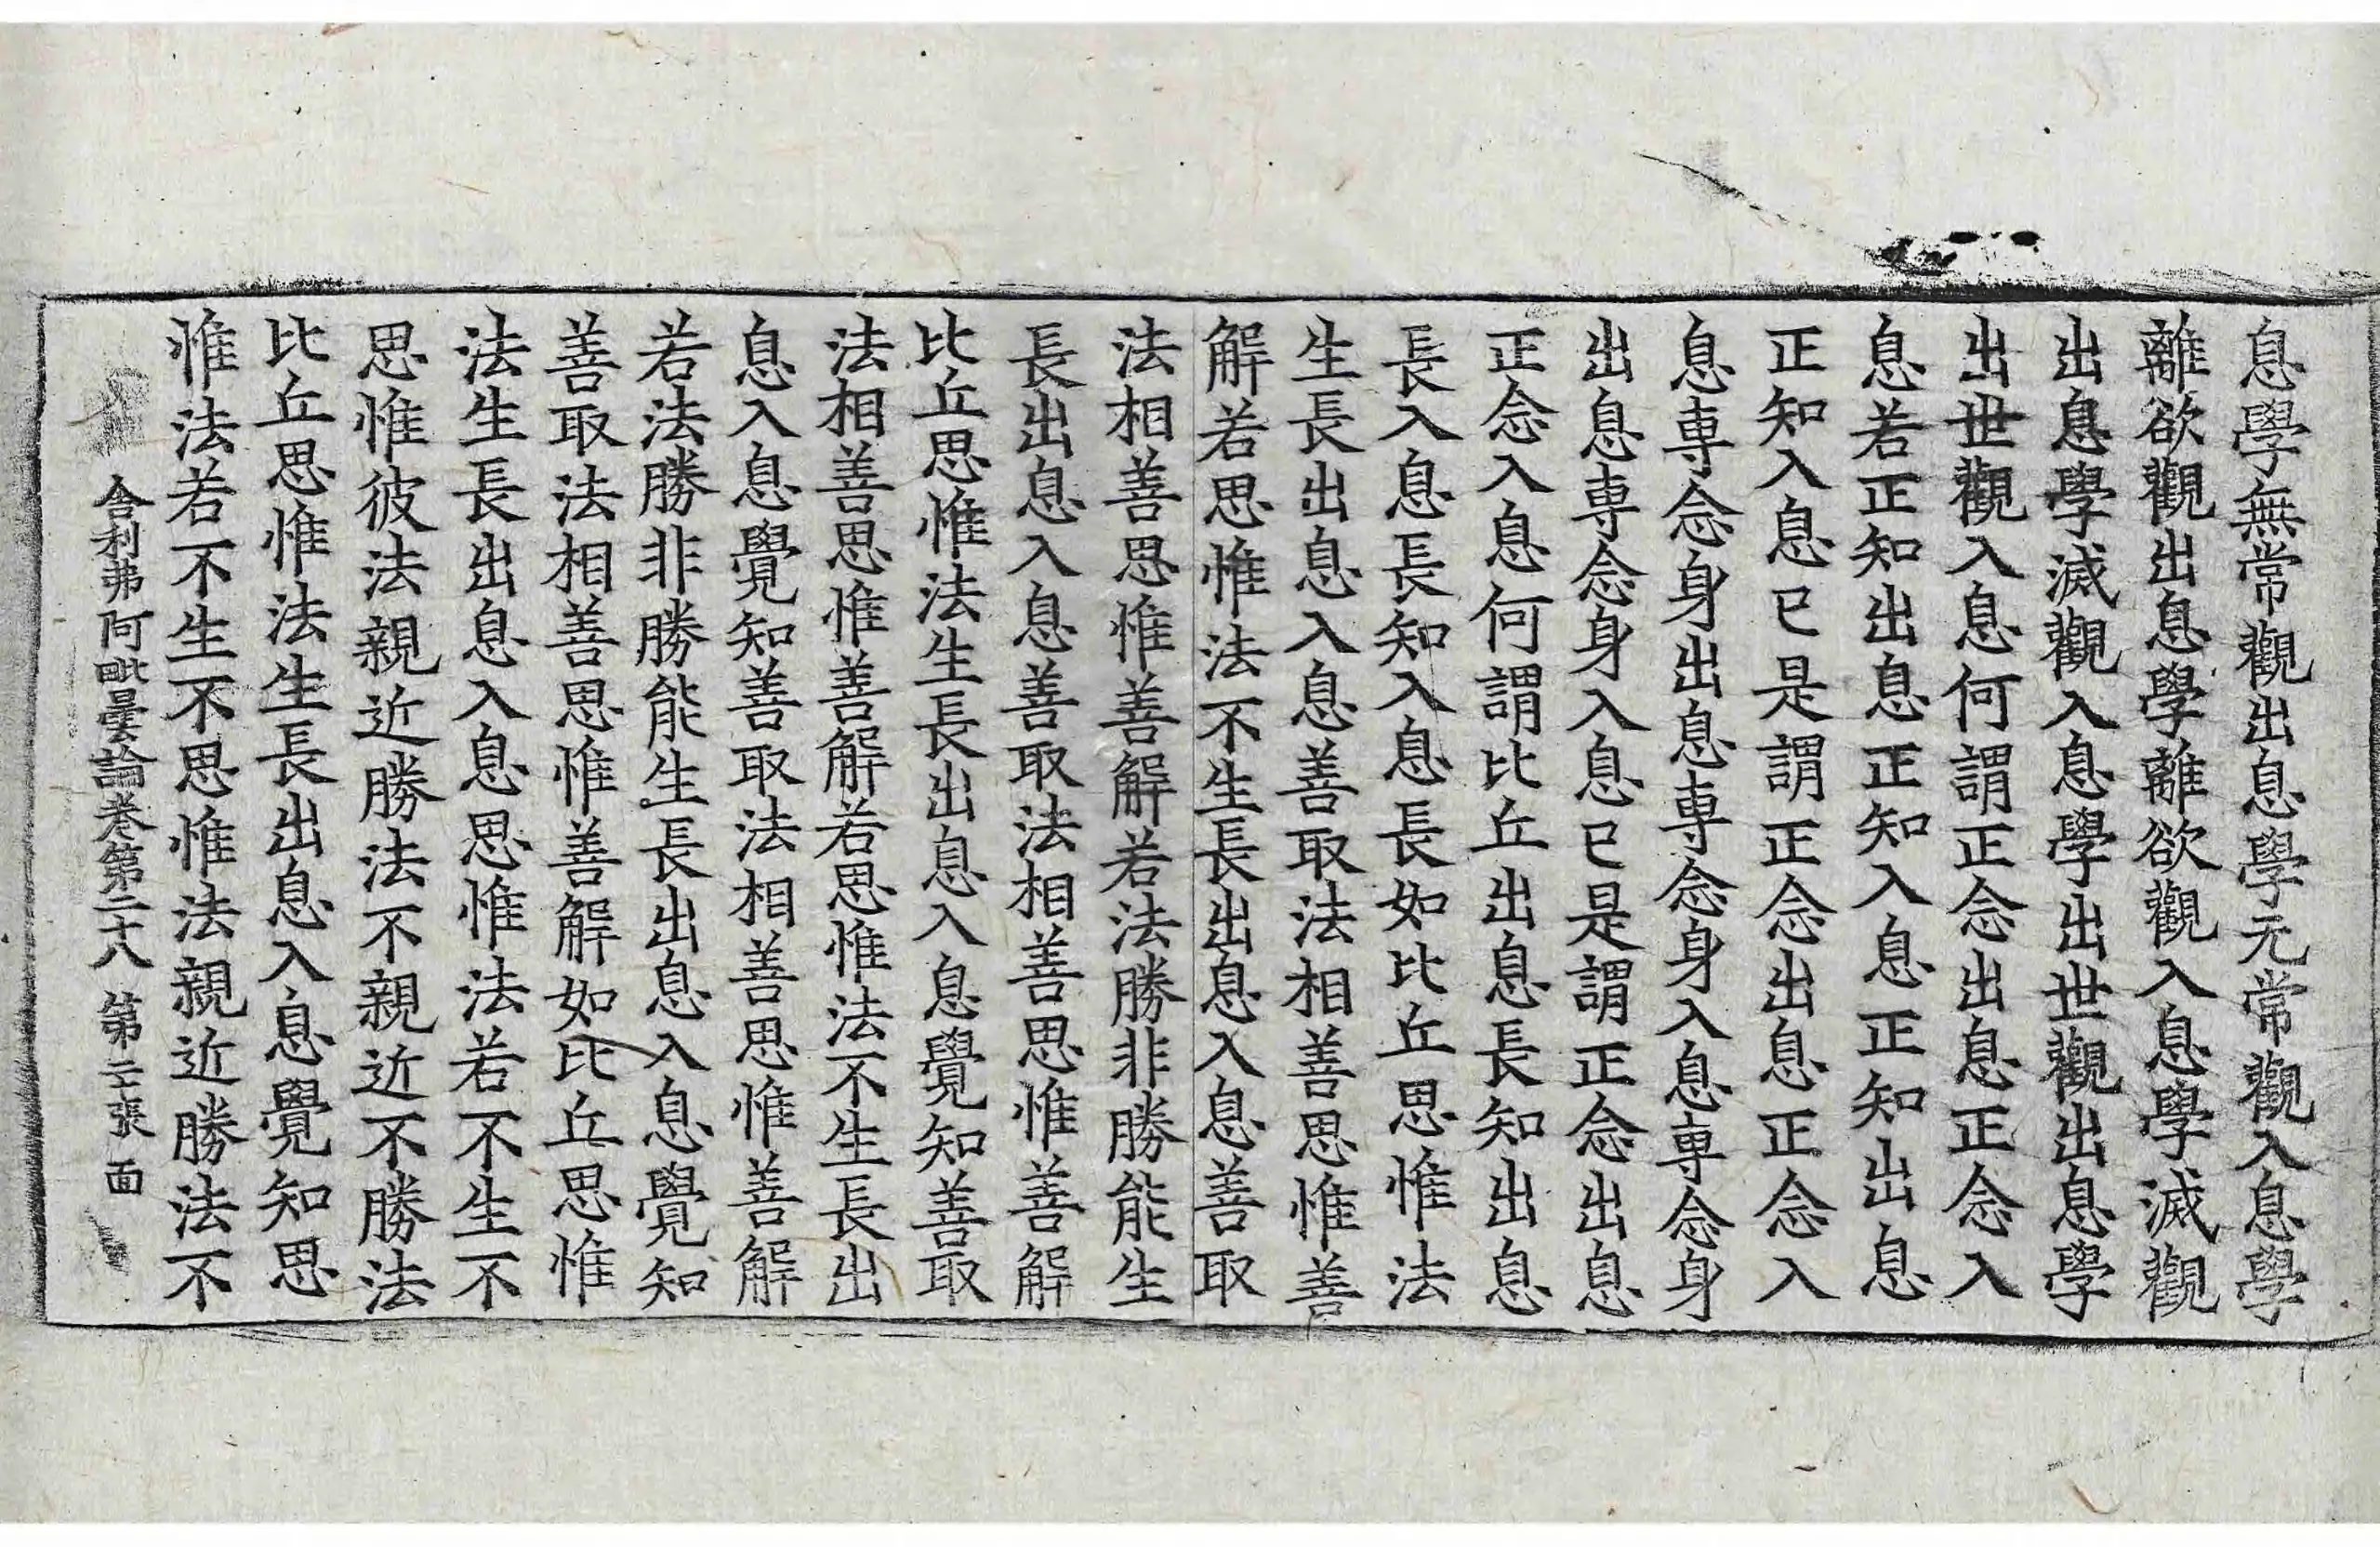 息學無常觀出息學无常觀入息學
離欲觀出息學離欲觀入息學滅觀
出息學滅觀入息學出世觀出息學
出世觀入息何謂正念出息正念入
息若正知出息正知入息正知出息
正知入息已是謂正念出息正念入
息專念身出息專念身入息專念身
出息專念身入息已是謂正念出息
正念入息何謂比丘出息長知出息
長入息長知入息長如比丘思惟法
生長出息入息善取法相善思惟善
解若思惟法不生長出息入息善取
法相善思惟善解若法勝非勝能生
長出息入息善取法相善思惟善解
比丘思惟法生長出息入息覺知善取
法相善思惟善解若思惟法不生長出
息入息覺知善取法相善思惟善解
若法勝非勝能生長出息入息覺知
善取法相善思惟善解如比丘思惟
法生長出息入息思惟法若不生不
思惟彼法親近勝法不親近不勝法
比丘思惟法生長出息入息覺知思
惟法若不生不思惟法親近勝法不
舍利弗阿毗曇論卷第二十八 第二十張 面